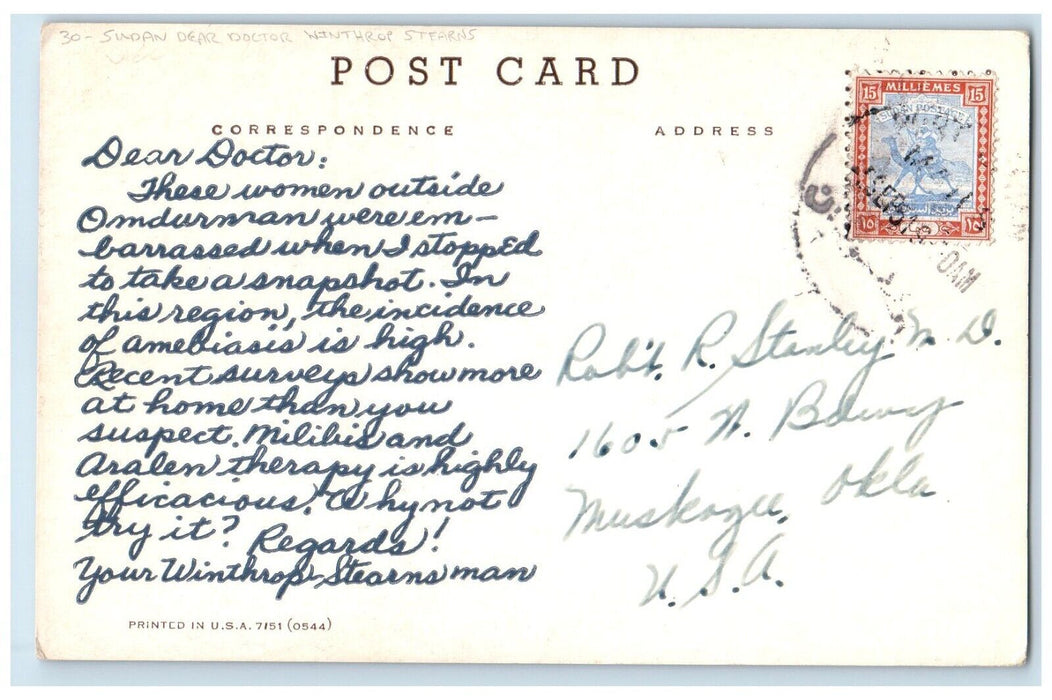 30- SUDAN DEAR DOCTOR WINTHROP STEARNS
POST CARD
CORRESPONDENCE
ADDRESS
Dear Doctor:
These women outside
Omdurman were em-
barrassed when I stopped
to take a snapshot. In
this region, the incidence
of amebiasis is high.
Recent surveys show more
at home than you
suspect. Milibis and
Aralen therapy is highly
efficacious. Why not
try it? Regards!
Your Winthrop-Stearns man
PRINTED IN U.S.A. 7/51 (0544)
15 MILLIEMES 15
SUDAN POSTAGE
١٥ ١٥
Rob't. R. Stanley M.D.
1605 N. Bdway
Muskogee, Okla
U.S.A.